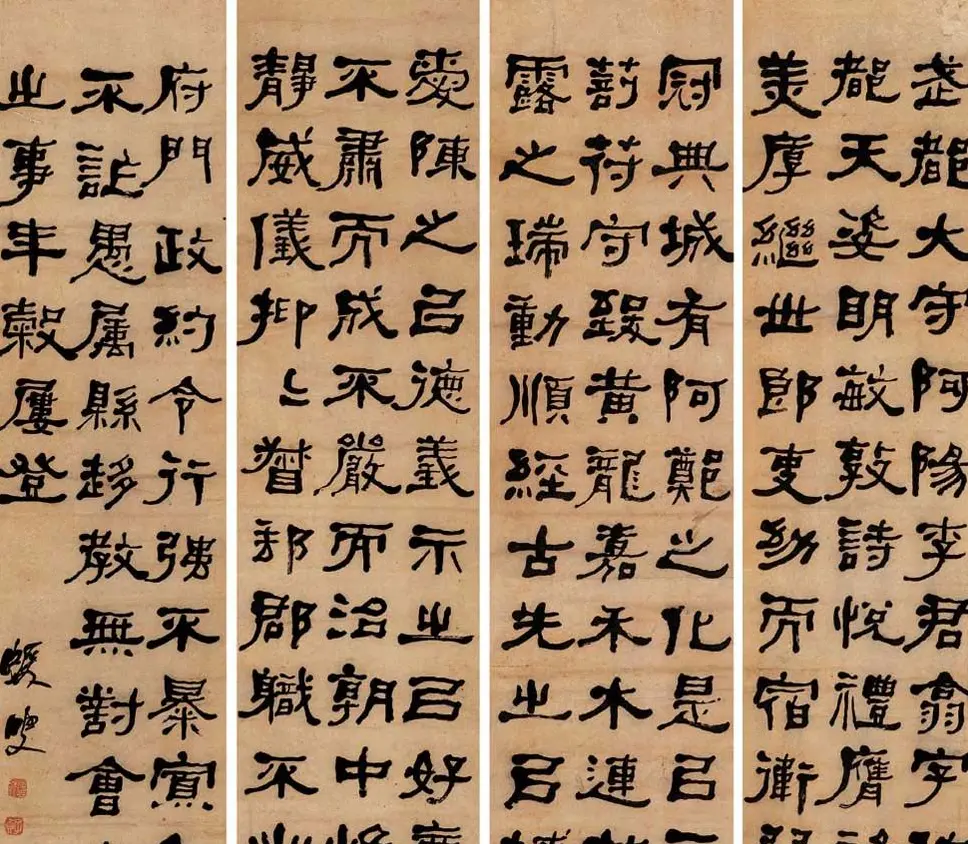 武都大守阿陽李君翕字
都天姿明敏敦詩悅禮膺
美厚繼世郎吏幼而宿衛
冠典城有阿鄭之化是㠯
符守致黃龍嘉禾木連
露之瑞動順經古先之㠯
愛陳之㠯德義示之㠯好
不肅而成不嚴而治朝中
靜威儀抑〻督郵郡職不
府門政約令行強不暴寡
不詐愚屬縣趍教無對會
之事年穀屢登
蝯叟